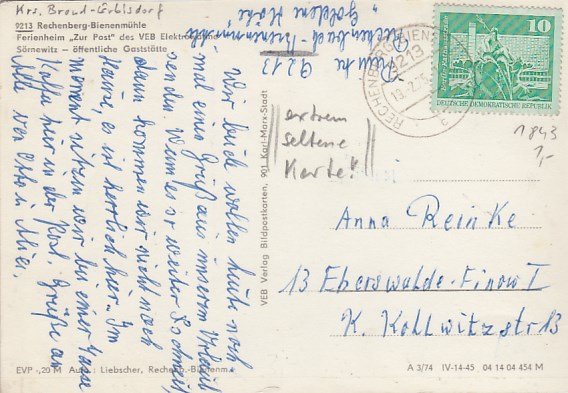 Krs. Brand-Erbisdorf
9213 Rechenberg-Bienenmühle
Ferienheim „Zur Post" des VEB Elektro
Sörnewitz – öffentliche Gaststätte
9213
Rechenbach-Bienenmühle
„Goldene Höhe"
Wir beide wollen heute noch
mal einen Gruß aus unserem Urlaub
senden. Wenn es so weiter schneit,
dann kommen wir nicht nach
Hause, es ist herrlich hier. Im
Moment sitzen wir bei einer Tasse
Kaffee hier in der Post. Grüße an
Alle von Otto u.
VEB Verlag Bildpostkarten, 901 Karl-Marx-Stadt
extrem
seltene
Karte!
RECHENBERG-BIENEN
9213
10
DEUTSCHE DEMOKRATISCHE REPUBLIK
1843
1,-
Anna Reinke
13 Eberswalde-Finow I
K. Kollwitzstr 13
EVP -,20 M Aufn.: Liebscher, Rechenb.-Bienenm.
A 3/74 IV-14-45 04 14 04 454 M